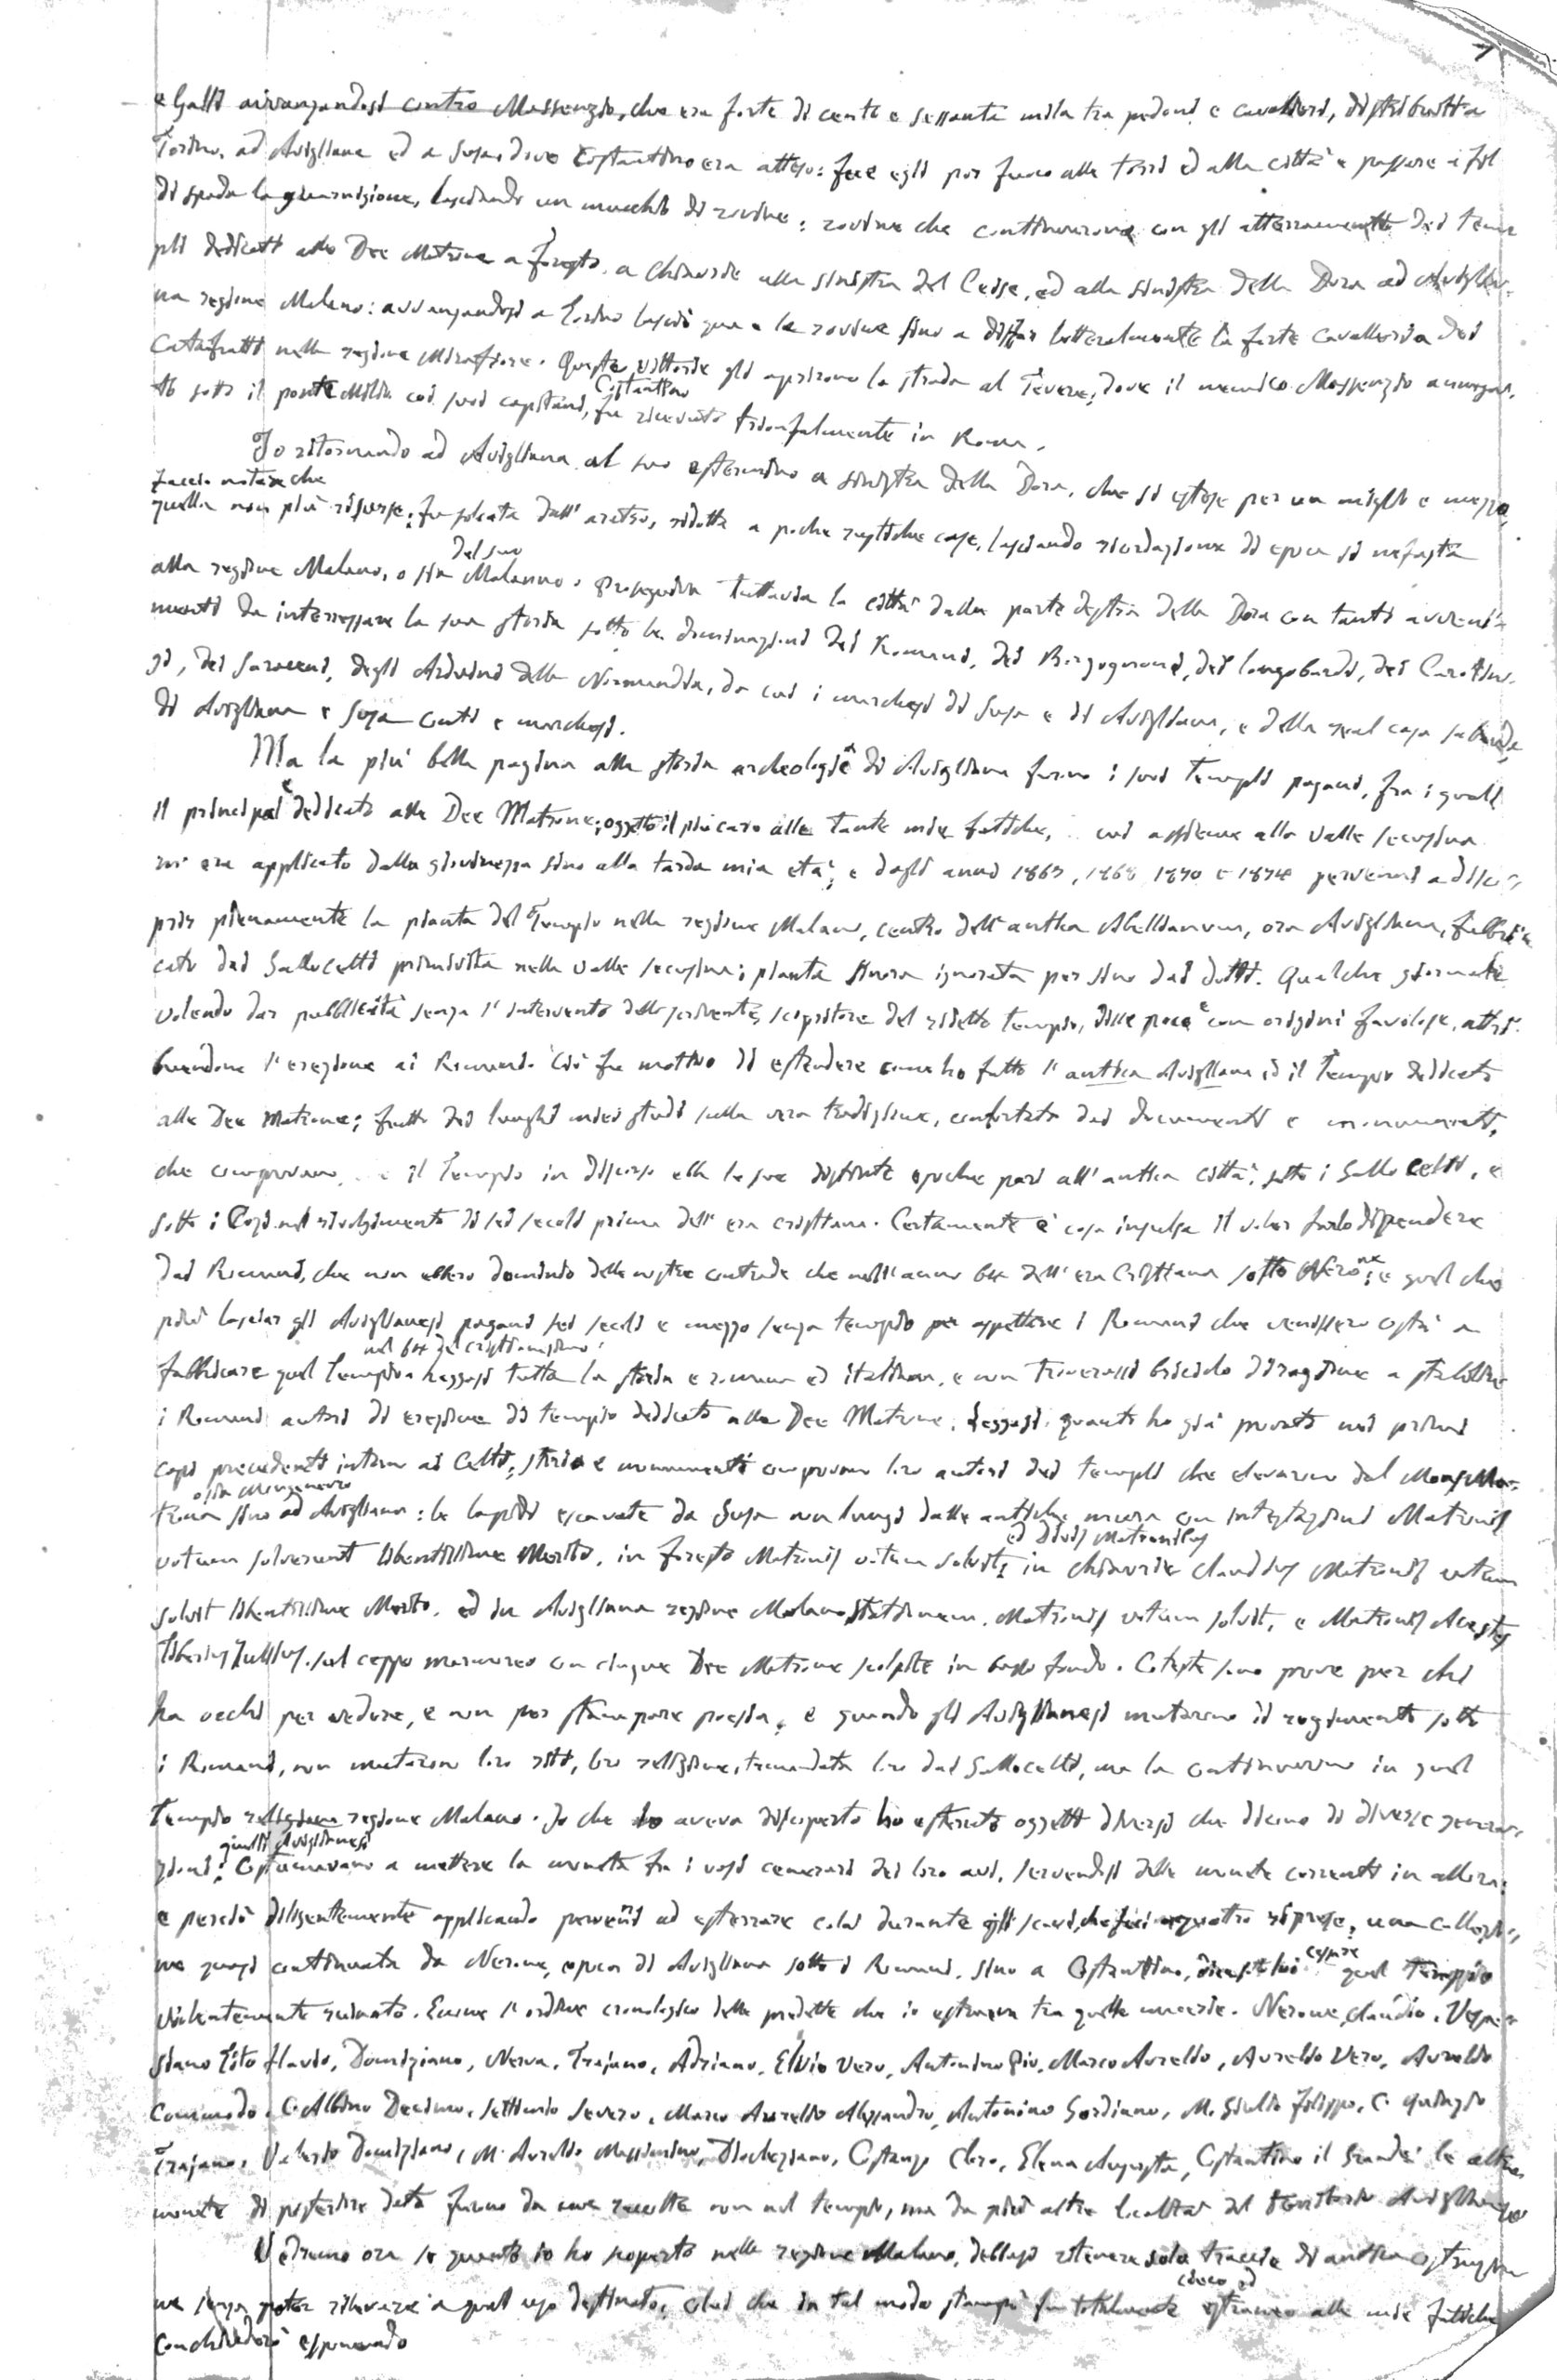 7
e Galli avvanzandosi contro Massenzio, che era forte di cento e sessanta mila tra pedoni e cavallieri, distribuitta
Torino, ad Avigliana ed a Susa, dove Costantino era atteso: fece egli por fuoco alle torri ed alla città e passare a fil
di spada la guarnigione, lasciando un mucchio di rovine: rovine che continuarono con gli atterramenti dei tem
pli dedicati alle Dee Matrone a Foresto, a Chiavrie alla sinistra del Ceise, ed alla sinistra della Dora ad Aviglia-
na regione Malano: avvanzandosi a Torino lasciò qua e là rovine sino a disfar letteralmente la forte cavalleria dei
Catafratti nella regione Mirafiore. Queste vittorie gli aprirono la strada al Tevere, dove il nemico Massenzio annega-
to sotto il ponte Milvio coi suoi capitani, Costantino fu ricevuto trionfalmente in Roma.
Io ritornando ad Avigliana al suo esterminio a sinistra della Dora, che si estese per un miglio e mezzo,
faccio notare che
quella non più risorse: fu solcata dall'aratro, ridotta a poche rustiche case, lasciando ricordazione di epoca sì nefasta
alla regione Malano, o sia del suo Malanno. Proseguiva tuttavia la città dalla parte destra della Dora con tanti avveni-
menti da interessare la sua storia sotto le dominazioni dei Romani, dei Borgognoni, dei Longobardi, dei Carolin-
gi, dei Saraceni, degli Arduini della Normandia, da cui i marchesi di Susa e di Avigliana, e della real casa sabauda
di Avigliana e Susa conti e marchesi.
Ma la più bella pagina alla storia archeologica di Avigliana furono i suoi templi pagani, fra i quali
il principale dedicato alle Dee Matrone, oggetto il più caro alle tante mie fatiche, cui assieme alla valle secusina
mi era applicato dalla giovinezza sino alla tarda mia età; e dagli anni 1867, 1868, 1870 e 1874 pervenni a disco-
prir pienamente la pianta del Tempio nella regione Malano, centro dell'antica Abellianum, ora Avigliana, fabbri-
cato dai Gallocelti primivita nella valle secusina; pianta sinora ignorata per sino dai dotti. Qualche giornale
volendo dar pubblicità senza l'intervento dello scrivente, scopritore del ridetto tempio, disse poca e con origini favolose, attri-
buendone l'erezione ai Romani. Ciò fu motivo di estendere come ho fatto l'antica Avigliana ed il Tempio dedicato
alle Dee Matrone; frutto dei lunghi miei studi sulla vera tradizione, confortata dai documenti e monumenti,
che comprovano il Tempio in discorso ebbe le sue distinte epoche pari all'antica città, sotto i Gallo Celti, e
sotto i Cozi nel rivolgimento di sei secoli prima dell'era cristiana. Certamente è cosa insulsa il voler farlo dipendere
dai Romani, che non ebbero dominio delle nostre contrade che nell'anno 64 dell'era Cristiana sotto Nerone; e quel che
più lasciar gli Aviglianesi pagani sei secoli e mezzo senza tempio per aspettare i Romani che venissero costì a
nel 64 del cristianesimo
fabbricare quel Tempio. Leggasi tutta la storia e romana ed italiana, e non troverassi briciolo di ragione a stabilire
i Romani autori di erezione di tempio dedicato alle Dee Matrone. Leggasi quanto ho già provato nei primi
capi precedenti intorno ai Celti, storia e monumenti comprovan loro autori dei templi che elevaron dal Mons Ma-
ossia Monginevro
trona sino ad Avigliana: le lapidi escavate da Susa non lungi dalle antiche mura con intestazioni Matronis
votum solverunt libentissime Merito, in Foresto Matronis votum solvit, ed Divis Matronibus in Chiavrie Claudius Matronis votum
solvit libentissime Merito, ed in Avigliana regione Malano stationem. Matronis votum solvit, e Matronis Acestes
Tiberius Jullius, sul ceppo marmoreo con cinque Dee Matrone scolpite in basso fondo. Coteste sono prove per chi
ha occhi per vedere, e non per stampare poesia, e quando gli Aviglianesi mutarono il reggimento sotto
i Romani, non mutaron loro riti, loro religione, tramandata loro dai Gallocelti, ma la continuarono in quel
Tempio religioso regione Malano. Io che lo aveva discoperto ho estratto oggetti diversi che dicono di diverse genera-
zioni: quelli Aviglianesi Costumavano a mettere la moneta fra i vasi cenerari dei loro avi, servendosi delle monete correnti in allora:
e perciò diligentemente applicando pervenni ad esterrare colà durante gli scavi, che feci a quattro riprese, una collezio-
ne quasi continuata da Nerone, epoca di Avigliana sotto i Romani, sino a Costantino, cesare quel tempio
violentemente ruinato. Eccone l'ordine cronologico delle predette che io estraeva tra quelle macerie. Nerone, Claudio, Vespa-
siano Tito Flavio, Domiziano, Nerva, Trajano, Adriano, Elvio Vero, Antonino Pio, Marco Aurelio, Aurelio Vero, Aurelio
Commodo, C. Albino Decimo, Settimio Severo, Marco Aurelio Alessandro, Antonino Gordiano, M. Giulio Filippo, C. Quinzio
Trajano, Valerio Domiziano, M. Aurelio Massimino, Diocleziano, Costanzo Cloro, Elena Augusta, Costantino il Grande: le altre
monete di posteriore data furono da me raccolte non nel tempio, ma da più altre località del territorio Aviglianese
Vedremo ora se quanto io ho scoperto nella regione Malano, debbasi ritenere sole traccie di antica costruzio
ne senza poter rilevare a qual uso destinato; colui che in tal modo stampò fu totalmente cieco ed estraneo alle mie fatiche
Conchiuderò esponendo